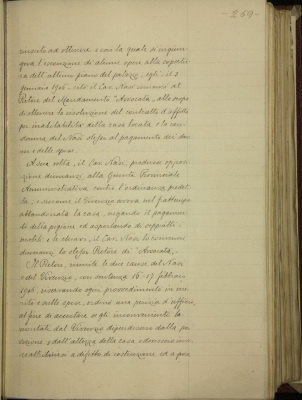 - 259 -
nunciò ad ottenere, e con la quale si ingiun
geva l'esecuzione di alcune opere alla copertu
ra dell'ultimo piano del palazzo, egli, il 3
gennaio 1906 - citò il Cav. Nasi innanzi al
Pretore del Mandamento "Avvocata", allo scopo
di ottenere la risoluzione del contratto d'affitto
per inabitabilità della casa locata e la con
danna del Nasi stesso al pagamento dei dan
ni e delle spese.
A sua volta, il Cav. Nasi, produsse opposi
zione dinnanzi alla Giunta Provinciale
Amministrativa contro l'ordinanza
e siccome il Vicenzio aveva nel frattempo
abbandonata la casa, negando il pagamen
to della pigione ed asportando di soppiatto
mobili e le chiavi, il Cav. Nasi lo convenne
dinnanzi lo stesso Pretore di "Avvocata".
Il Pretore, riunite le due cause del Nasi
e del Vicenzio, con sentenza 16-17 febbraio
1906, riservando ogni provvedimento in me
rito e nelle spese, ordinò una perizia d'ufficio,
al fine di accertare se gli inconvenienti la
mentati dal Vicenzio dipendessero dalla
e dall'altezza della casa o dovessero in
vece a difetto di costruzione ed a